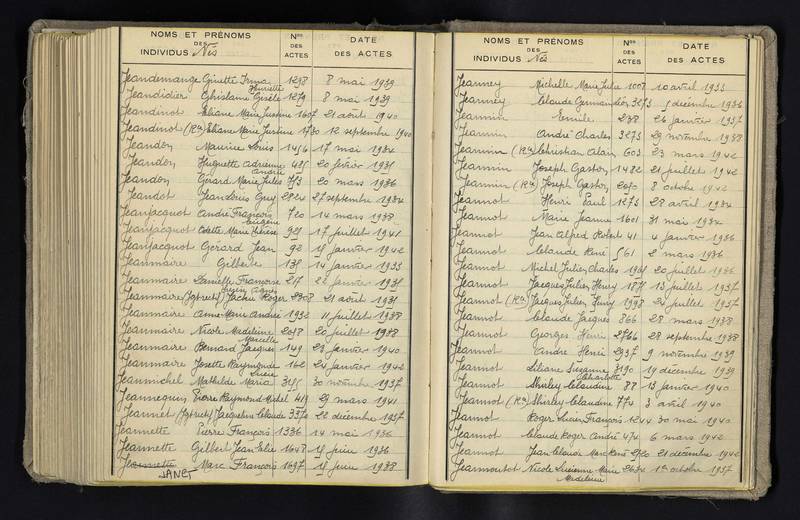 NOMS ET PRÉNOMS
DES
INDIVIDUS Nés
Nos
DES
ACTES
DATE
DES ACTES
Jeandemange Ginette Irma 1298 8 mai 1939
Henriette
Jeandidier Ghislaine Gisèle 1279 8 mai 1939
Jeandinot Liliane Marie Justine 1607 21 août 1940
Jeandinot (Rte) Liliane Marie Justine 1730 12 septembre 1940
Jeandon Maurice Louis 1456 17 mai 1934
Jeandon Huguette Adrienne 20 février 1935
André
Jeandon Gérard Marie Jules 20 mars 1936
Jeandot Jean Louis Guy 2824 27 septembre 1934
Jeanjacquot André François 720 14 mars 1938
Eugène
Jeanjacquot Odette Marie Thérèse 921 17 juillet 1941
Jeanjacquot Gérard Jean 92 janvier 1942
Jeanmaire Gilbert 14 janvier 1933
Jeanmaire Danielle Françoise 217 janvier
Jeanmaire Roger 2808 21 août 1931
Jeanmaire Anne Marie Andrée 1932 11 juillet 1938
Jeanmaire Nicole Madeleine 2018 20 juillet 1938
Marcelle
Jeanmaire Bernard Jacques 149 23 janvier 1940
Jeanmaire Josette Raymonde 162 24 janvier 1942
Lucie
Jeanmichel Mathilde Maria 30 novembre 1937
Jeannequin Pierre Raymond Michel 419 29 mars 1941
Jeannet Jacqueline Claude 3370 22 décembre 1937
Jeannette Pierre François 1336 14 mai 1936
Jeannette Gilbert Jean Elie 1648 juin 1936
Jeannette Marc François 1697 juin 1938
JANET
NOMS ET PRÉNOMS
DES
INDIVIDUS Nés
Nos
DES
ACTES
DATE
DES ACTES
Jeanney Michelle Marie Julie 1007 10 avril 1933
Jeanney Claude Germain 3273 décembre 1936
Jeannin Emile 238 26 janvier 1937
Jeannin André Charles 3273 29 novembre 1938
Jeannin (Rte) Christian Alain 603 23 mars 1942
Jeannin Joseph Gaston 1482 21 juillet 1942
Jeannin (Rte) Joseph Gaston 2070 8 octobre 1942
Jeannot Henri Paul 1273 28 avril 1934
Jeannot Marie Jeanne 1601 31 mai 1934
Jeannot Jean Alfred Robert 41 4 janvier 1936
Jeannot Claude René 561 2 mars 1936
Jeannot Michel Julien Charles 1961 20 juillet 1936
Jeannot Jacques Julien Henry 1871 13 juillet 1937
Jeannot (Rte) Jacques Julien Henry 1998 24 juillet 1937
Jeannot Claude Jacques 866 28 mars 1938
Jeannot Georges Henri 2766 28 septembre 1938
Jeannot André Henri 2937 9 novembre 1939
Jeannot Liliane Suzanne 3190 19 décembre 1939
Charlotte
Jeannot Shirley Claudine 88 13 janvier 1940
Jeannot (Rte) Shirley Claudine 774 3 avril 1940
Jeannot Roger Lucien François 1244 30 mai 1940
Jeannot Claude Roger André 474 6 mars 1942
Jeannot Jean Claude Marc René 21 décembre 1942
Jeanmoutot Nicole Lucienne Marie 2634 1er octobre 1937
Madeleine